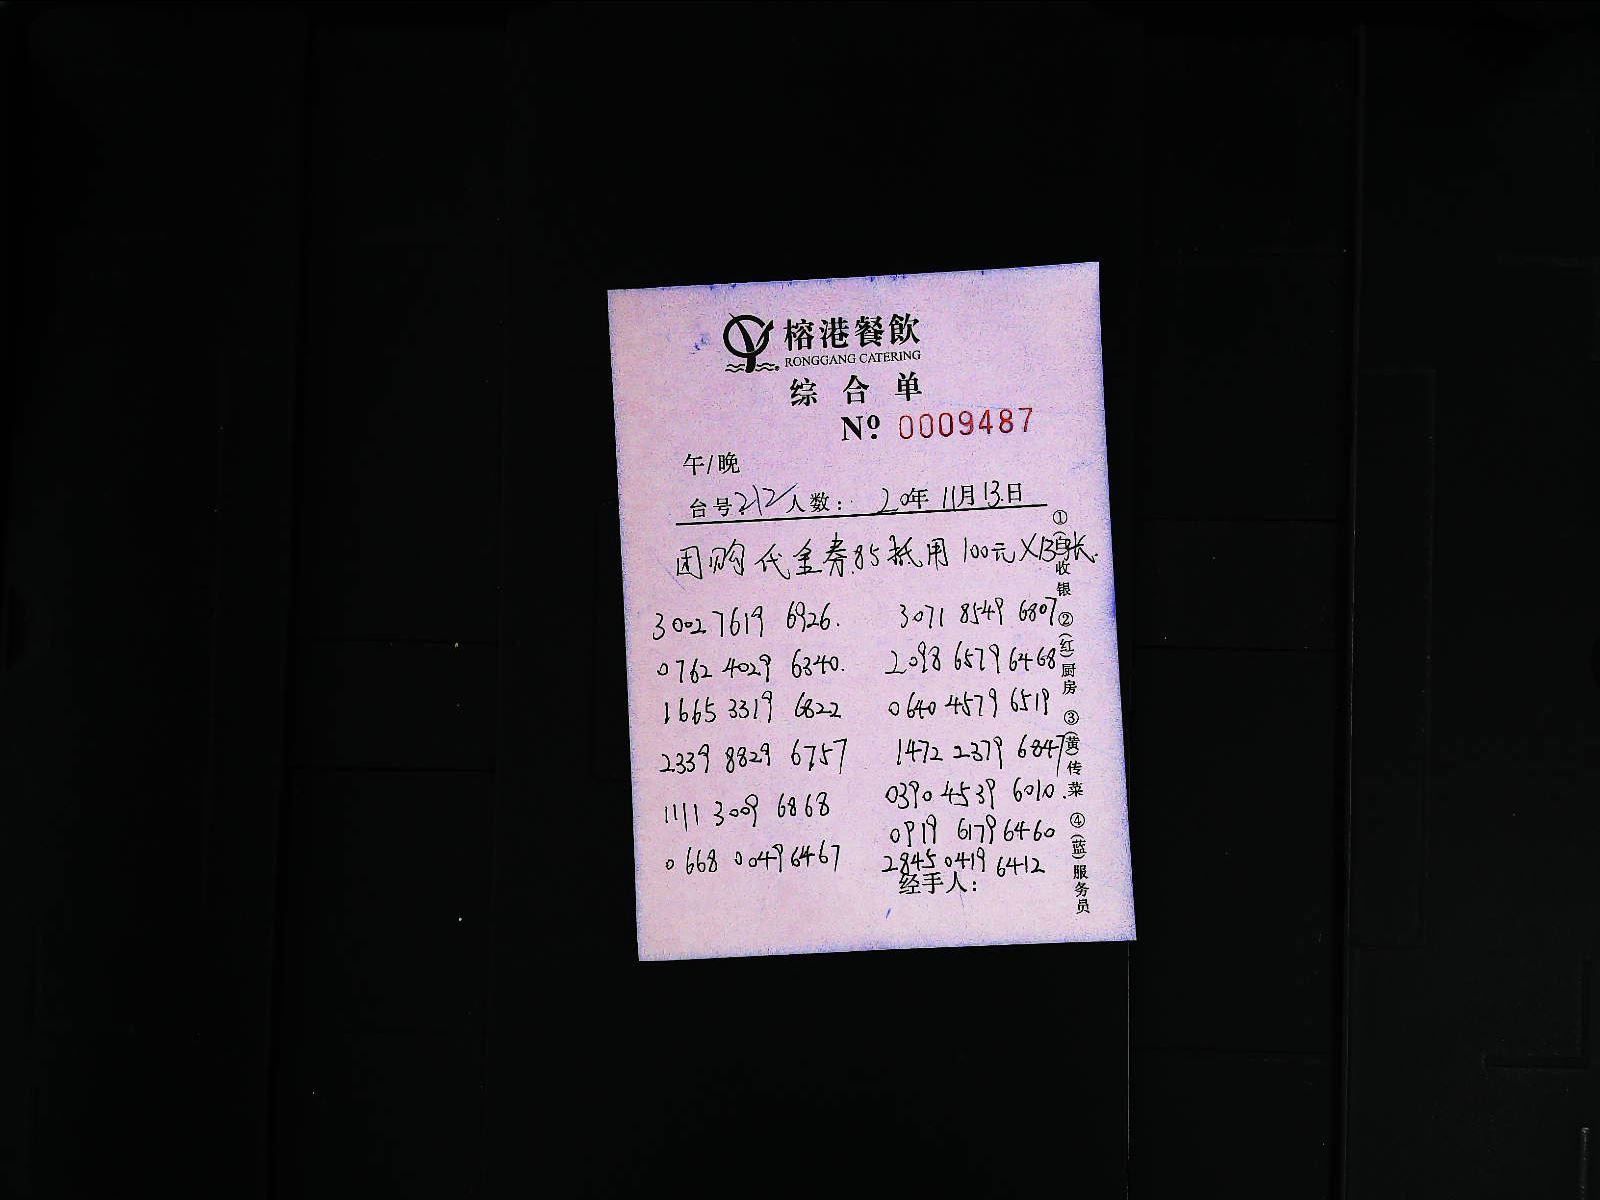 榕港餐飲
RONGGANG CATERING
综合单
Nº 0009487
午/晚
台号:212 人数: 20年11月13日
团购代金券85抵用100元X13张.
3002 7619 6926.
3071 8549 6807
0762 4029 6340.
2098 6579 6468
1665 3319 6822
0640 4579 6519
2339 8829 6757
1472 2379 6847
1111 3009 6868
0390 4539 6010.
0919 6179 6460
0668 0049 6467
2845 0419 6412
经手人:
①(白)收银 ②(红)厨房 ③(黄)传菜 ④(蓝)服务员